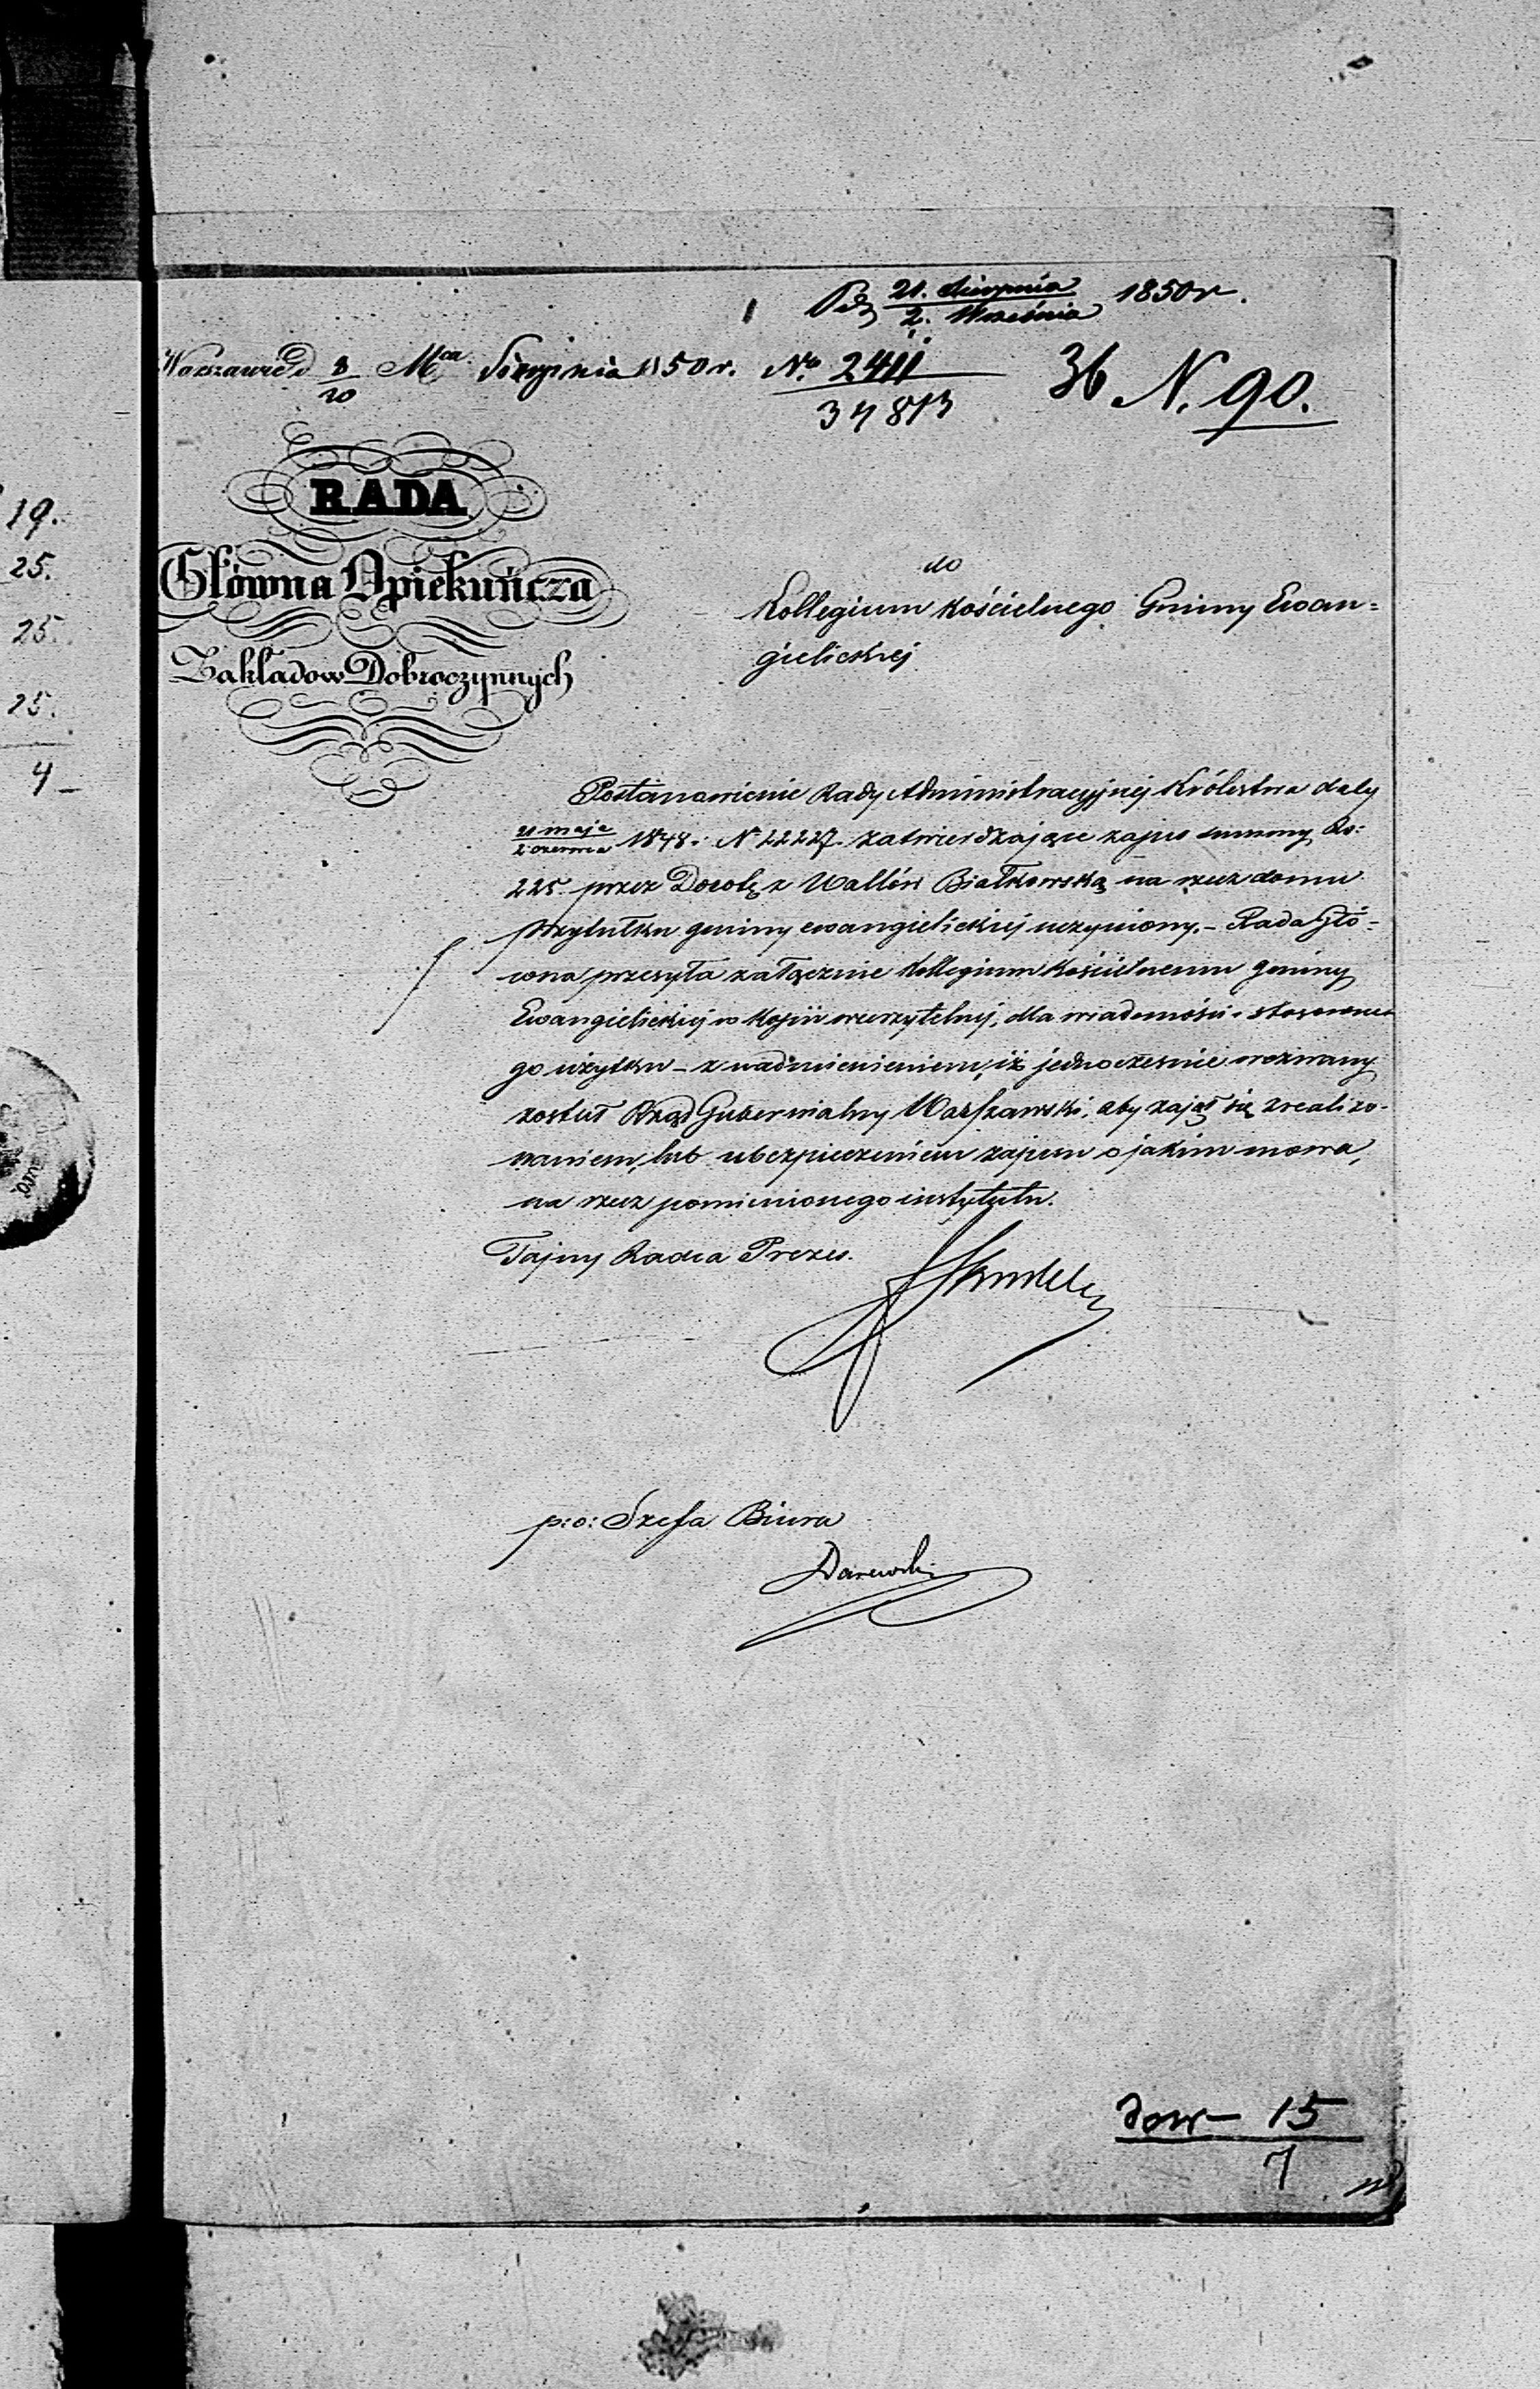 21. Sierpnia
2. Września 1850 r.
Warszawie d 8/20 Mca Sierpnia 1850 r. No. 2411
34813
36 N. 90.
RADA
Główna Opiekuńcza
Zakładow Dobroczynnych
do
Kollegium Kościelnego Gminy Ewan=
gielickiej
Postanowienie Rady Administracyjnej Królestwa daty
21 maja
2 czerwca 1848. N 22227. zatwierdzające zapis summy Rs:
225. przez Dorotę z Wallów Białkowską na rzecz domu
Przytułku gminy ewangielickiej uczyniony. – Rada Głó=
wna przesyła załącznie Kollegium Kościelnemu Gminy
Ewangielickiej w Kopii wierzytelnej, dla wiadomości i stosowne
go użytku – z nadmienieniem, iż jednocześnie wezwany
został Rząd Gubernialny Warszawski, aby zajął się zrealizo-
waniem, lub ubezpieczeniem zapisu o jakim mowa,
na rzecz pomienionego instytutu.
Tajny Radca Prezes.
p: o: Szefa Biura
Darewski
15
7
19.
25.
25.
25.
4 –